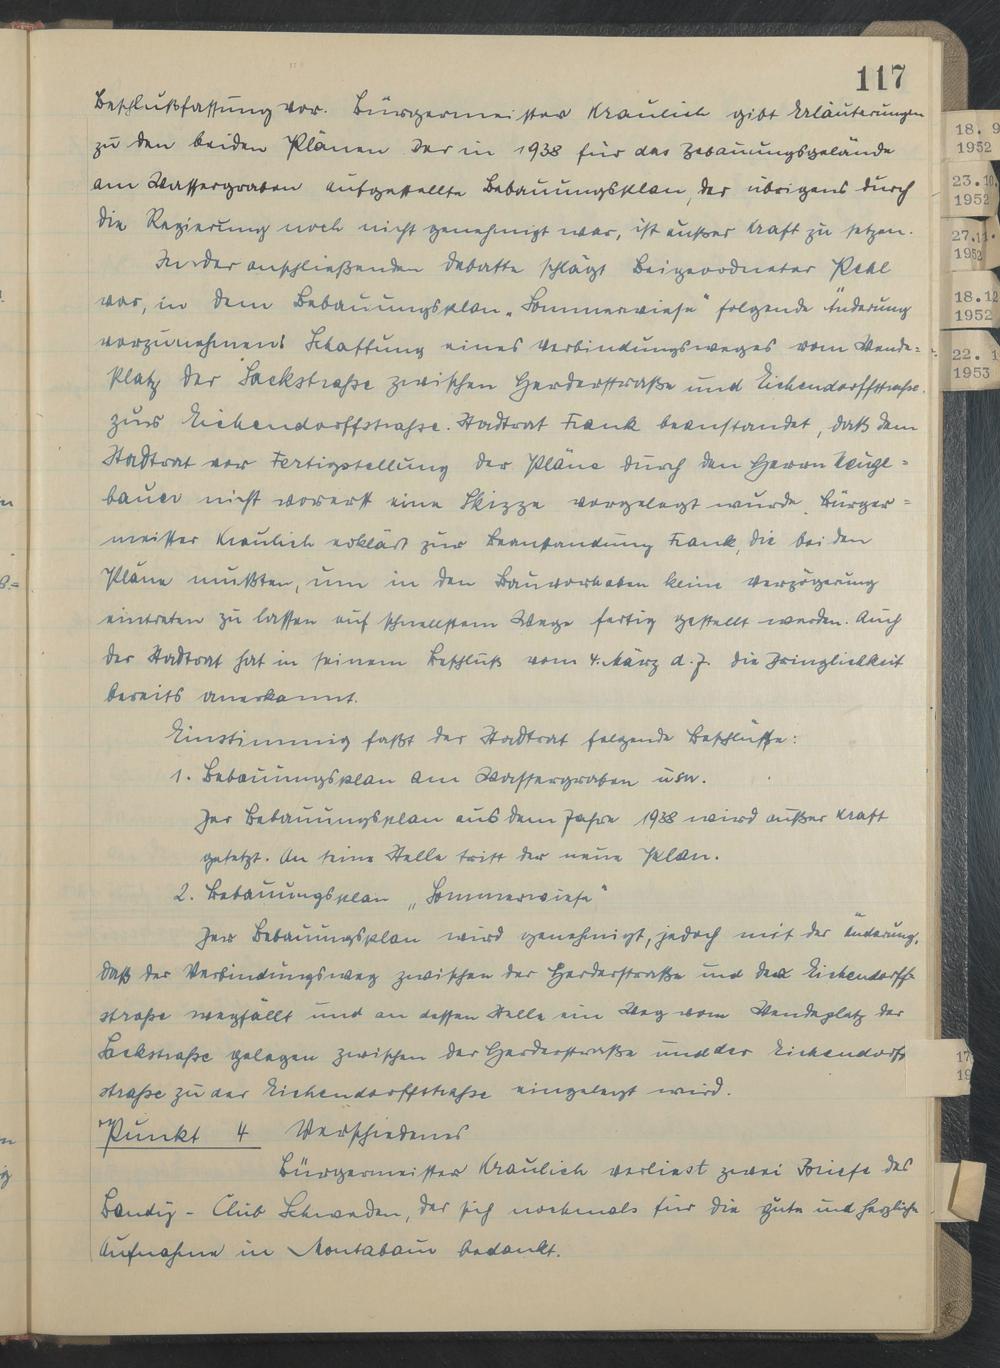 117
Beschlußfassung vor. Bürgermeister Kraulich gibt Erläuterungen
zu den beiden Plänen Der in 1938 für das Bebauungsgelände
am Wassergraben aufgestellte Bebauungsplan, der übrigens durch
die Regierung noch nicht genehmigt war, ist außer Kraft zu setzen.
In der anschließenden Debatte schlägt Beigeordneter Pehl
vor, in dem Bebauungsplan „Sommerwiese" folgende Änderung
vorzunehmen: Schaffung eines Verbindungsweges vom Wende=
platz der Sackstraße zwischen Herderstraße und Eichendorffstraße
zur Eichendorffstraße. Stadtrat Frank beanstandet, daß dem
Stadtrat vor Fertigstellung der Pläne durch den Herrn Kugl=
bauer nicht vorerst eine Skizze vorgelegt wurde. Bürger=
meister Kraulich erklärt zur Beanstandung Frank, die beiden
Pläne mußten, um in den Bauvorhaben keine Verzögerung
eintreten zu lassen auf schnellstem Wege fertig gestellt werden. Auch
der Stadtrat hat in seinem Beschluß vom 4. März d. J. die Dringlichkeit
bereits anerkannt.
Einstimmig faßt der Stadtrat folgende Beschlüsse:
1. Bebauungsplan am Wassergraben usw.
Der Bebauungsplan aus dem Jahre 1938 wird außer Kraft
gesetzt. An seine Stelle tritt der neue Plan.
2. Bebauungsplan „Sommerwiese"
Der Bebauungsplan wird genehmigt, jedoch mit der Änderung,
daß der Verbindungsweg zwischen der Herderstraße und der Eichendorff
straße wegfällt und an dessen Stelle ein Weg vom Wendeplatz der
Sackstraße gelegen zwischen der Herderstraße und der Eichendorff
straße zu der Eichendorffstraße eingelegt wird.
Punkt 4 Verschiedenes
Bürgermeister Kraulich verliest zwei Briefe des
Bandy-Club Schweden, der sich nochmals für die gute und herzliche
Aufnahme in Montabaur bedankt.
18. 9
1952
23.10.
1952
27.11.
1952
18.12
1952
22. 1
1953
17
19